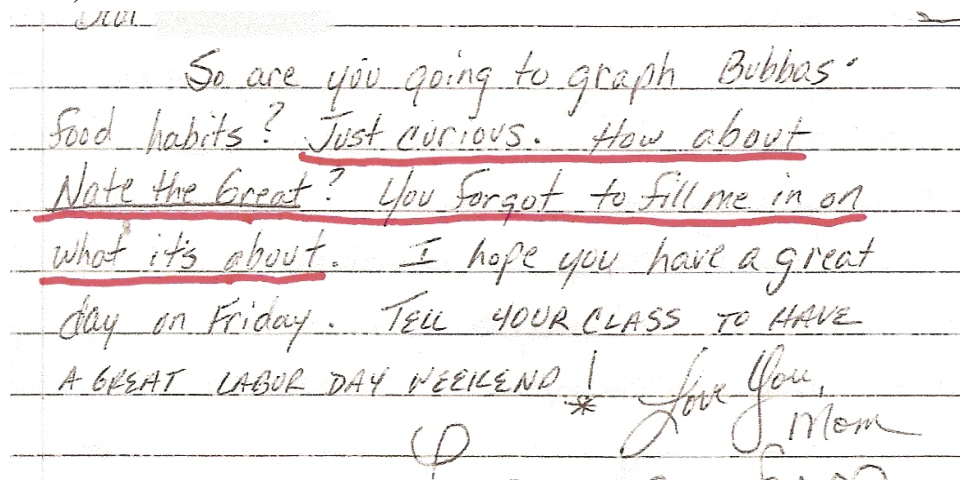 So are you going to graph Bubbas'
food habits? Just curious. How about
Nate the Great? You forgot to fill me in on
what it's about. I hope you have a great
day on Friday. TELL YOUR CLASS TO HAVE
A GREAT LABOR DAY WEEKEND!
* Love You,
Mom